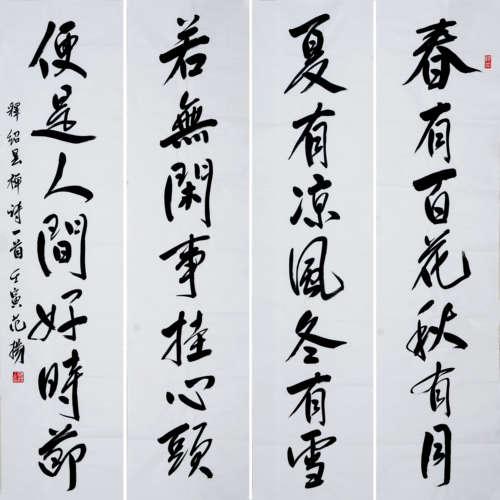 春有百花秋有月
夏有凉風冬有雪
若無閑事挂心頭
便是人間好時節
釋紹昙禅詩一首壬寅范揚